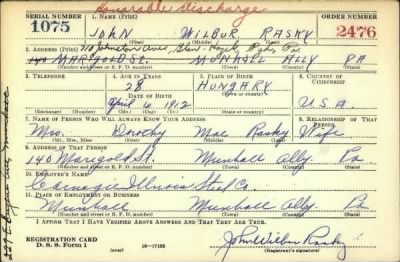 Honorable Discharge
SERIAL NUMBER 1. NAME (Print) ORDER NUMBER
1075 JOHN WILBUR RASKY 2476
2. ADDRESS (Print)
140 MARIGOLD ST. MUNHALL ALLY PA
3. TELEPHONE 4. AGE IN YEARS 5. PLACE OF BIRTH 6. COUNTRY OF CITIZENSHIP
28 HUNGARY
DATE OF BIRTH
April 6, 1912 U.S.A.
(Exchange) (Number) (Mo.) (Day) (Yr.) (State or country)
7. NAME OF PERSON WHO WILL ALWAYS KNOW YOUR ADDRESS 8. RELATIONSHIP OF THAT PERSON
Mrs. Dorothy Mae Rasky Wife
(Mr., Mrs., Miss) (First) (Middle) (Last)
9. ADDRESS OF THAT PERSON
140 Marigold St. Munhall Ally. Pa.
(Number and street or R. F. D. number) (Town) (County) (State)
10. EMPLOYER'S NAME
Carnegie Illinois Steel Co.
11. PLACE OF EMPLOYMENT OR BUSINESS
Munhall Munhall Ally. Pa.
(Number and street or R. F. D. number) (Town) (County) (State)
I AFFIRM THAT I HAVE VERIFIED ABOVE ANSWERS AND THAT THEY ARE TRUE.
REGISTRATION CARD
D. S. S. Form 1 (over) 16—17105
John Wilbur Rasky
(Registrant's signature)